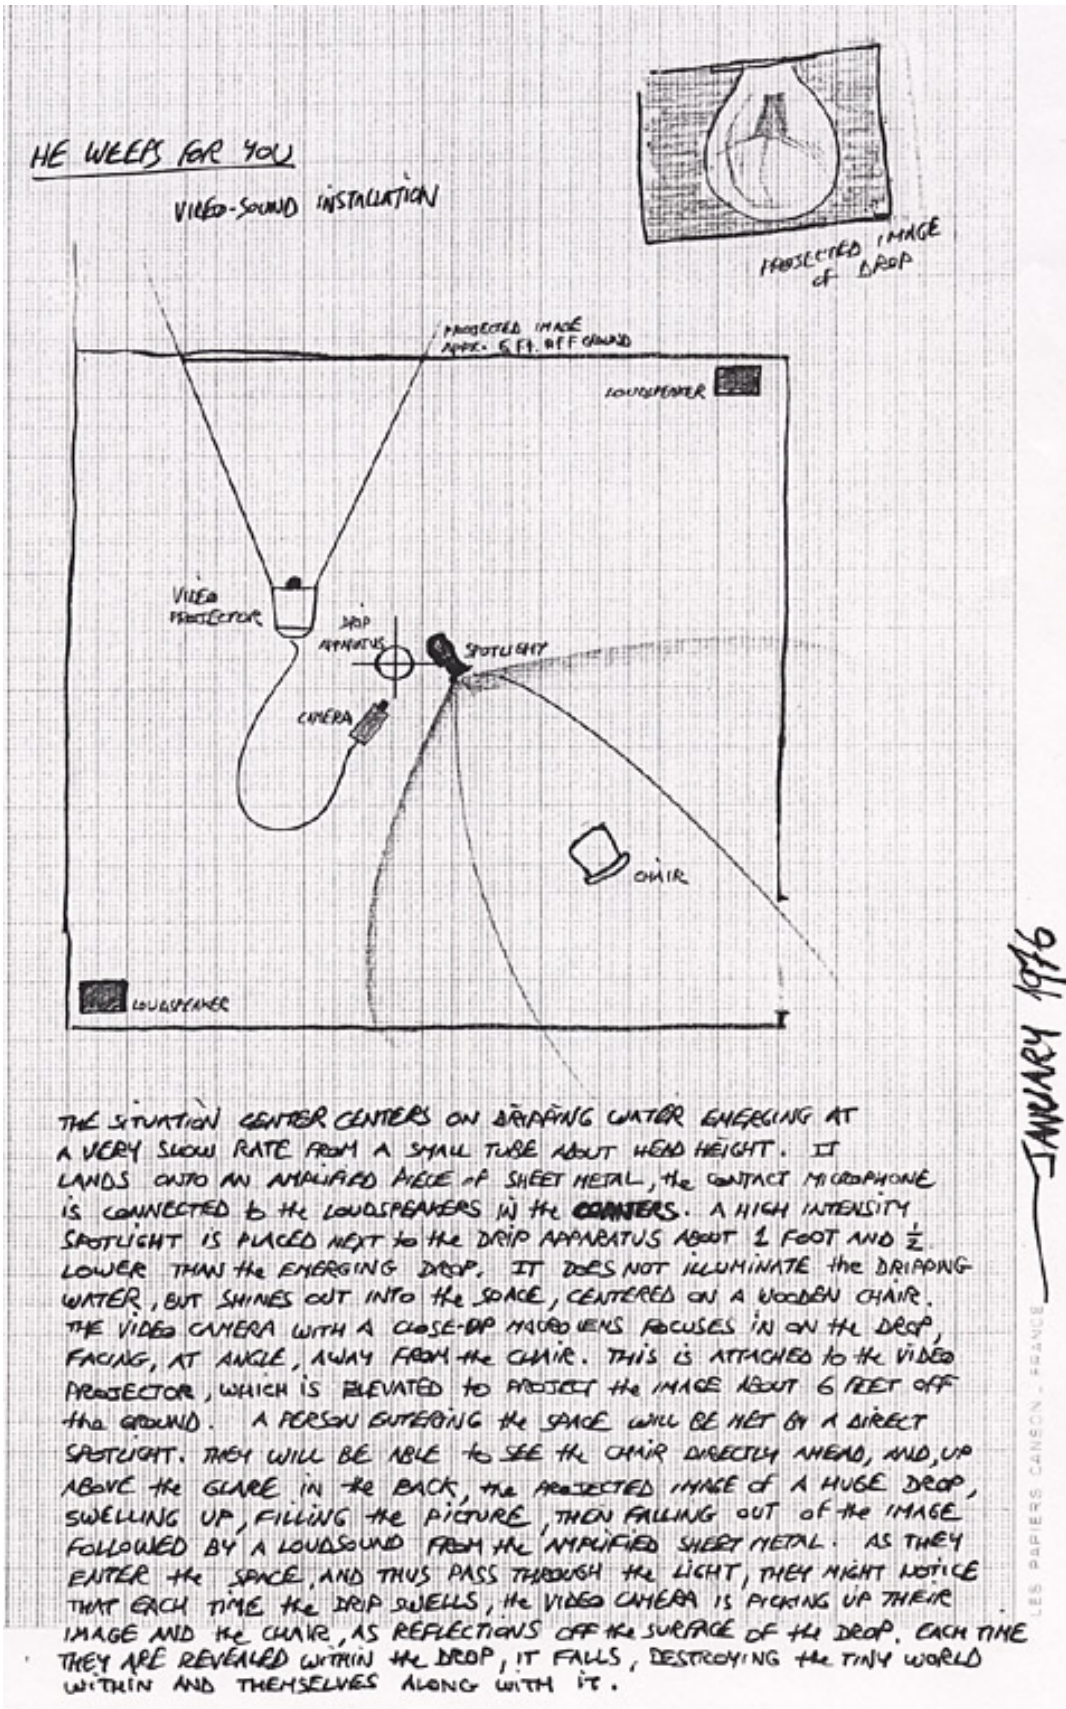 HE WEEPS FOR YOU
VIDEO-SOUND INSTALLATION
PROJECTED IMAGE
of DROP
PROJECTED IMAGE
APPX. 6 FT. OFF GROUND
LOUDSPEAKER
VIDEO
PROJECTOR
DRIP
APPARATUS
SPOTLIGHT
CAMERA
CHAIR
LOUDSPEAKER
JANUARY 1976
THE SITUATION CENTER CENTERS ON DRIPPING WATER EMERGING AT
A VERY SLOW RATE FROM A SMALL TUBE ABOUT HEAD HEIGHT. IT
LANDS ONTO AN AMPLIFIED PIECE of SHEET METAL, the CONTACT MICROPHONE
IS CONNECTED to the LOUDSPEAKERS IN the CORNERS. A HIGH INTENSITY
SPOTLIGHT IS PLACED NEXT to the DRIP APPARATUS ABOUT 1 FOOT AND 1/2
LOWER THAN the EMERGING DROP. IT DOES NOT ILLUMINATE the DRIPPING
WATER, BUT SHINES OUT INTO the SPACE, CENTERED ON A WOODEN CHAIR.
THE VIDEO CAMERA WITH A CLOSE-UP MACRO LENS FOCUSES IN ON the DROP,
FACING, AT ANGLE, AWAY FROM the CHAIR. THIS IS ATTACHED to the VIDEO
PROJECTOR, WHICH IS ELEVATED to PROJECT the IMAGE ABOUT 6 FEET OFF
the GROUND. A PERSON ENTERING the SPACE WILL BE MET BY A DIRECT
SPOTLIGHT. THEY WILL BE ABLE to SEE the CHAIR DIRECTLY AHEAD, AND, UP
ABOVE the GLARE IN the BACK, the PROJECTED IMAGE of A HUGE DROP,
SWELLING UP, FILLING the PICTURE, THEN FALLING OUT of the IMAGE
FOLLOWED BY A LOUDSOUND FROM the AMPLIFIED SHEET METAL. AS THEY
ENTER the SPACE, AND THUS PASS THROUGH the LIGHT, THEY MIGHT NOTICE
THAT EACH TIME the DRIP SWELLS, the VIDEO CAMERA IS PICKING UP THEIR
IMAGE AND the CHAIR, AS REFLECTIONS OFF the SURFACE OF the DROP. EACH TIME
THEY ARE REVEALED WITHIN the DROP, IT FALLS, DESTROYING the TINY WORLD
WITHIN AND THEMSELVES ALONG WITH IT.
LES PAPIERS CANSON - FRANCE